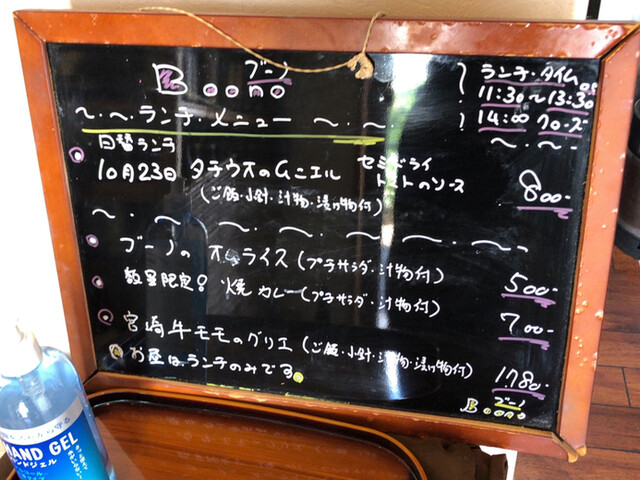 ブーノ
Boono
ランチ・タイム
11:30〜13:30 o.s
14:00 クローズ
〜・〜・ランチ・メニュー 〜・〜・
日替ランチ
10月23日 タチウオのムニエル セミドライトマトのソース 800-
(ご飯・小鉢・汁物・漬け物付)
ブーノの オムライス (プチサラダ・汁物付) 500-
数量限定? 焼カレー (プチサラダ・汁物付) 700-
宮崎牛モモのグリエ (ご飯・小鉢・汁物・漬け物付) 1780-
お昼はランチのみです。
ブーノ
Boono
HAND GEL
ンドジェル